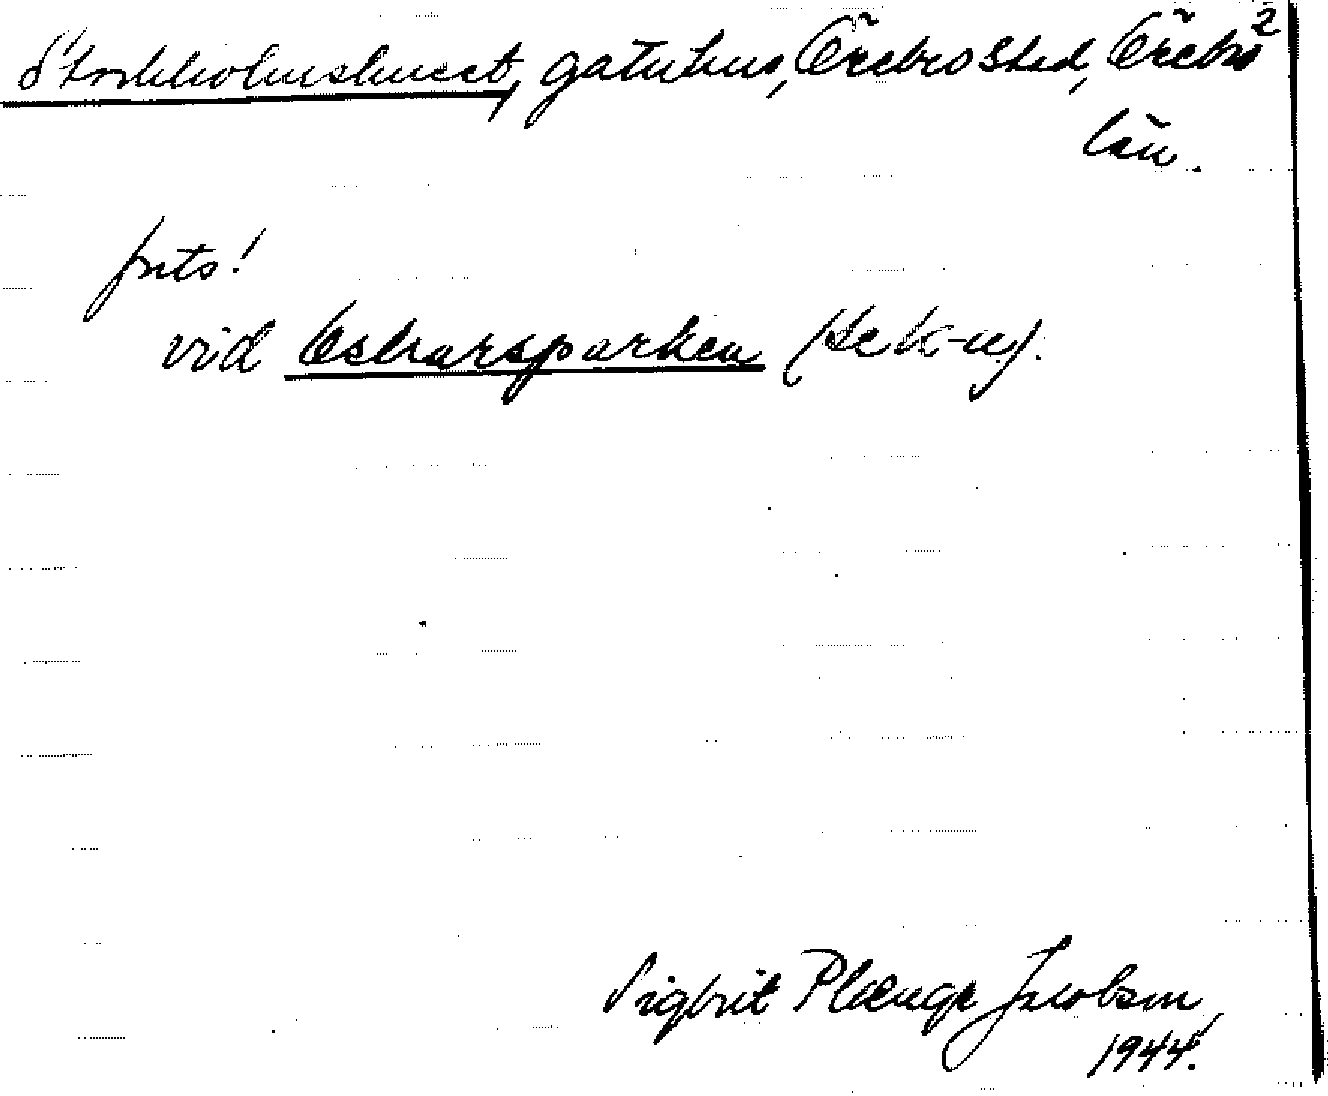 Stockholmshuset, gatuhus, Örebro stad, Örebro 2
län.
forts!
vid Oskarsparken (se k-n).
Sigbrit Plænge Jacobson,
1944.